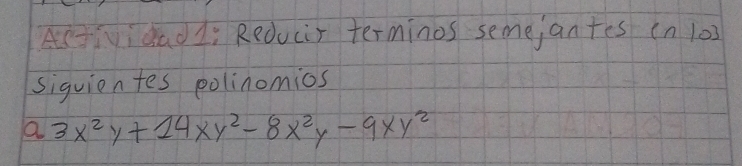 Actividad 1: Reducir terminos semejantes en los
siguientes polinomios
a 3x²y + 14xy² - 8x²y - 9xy²